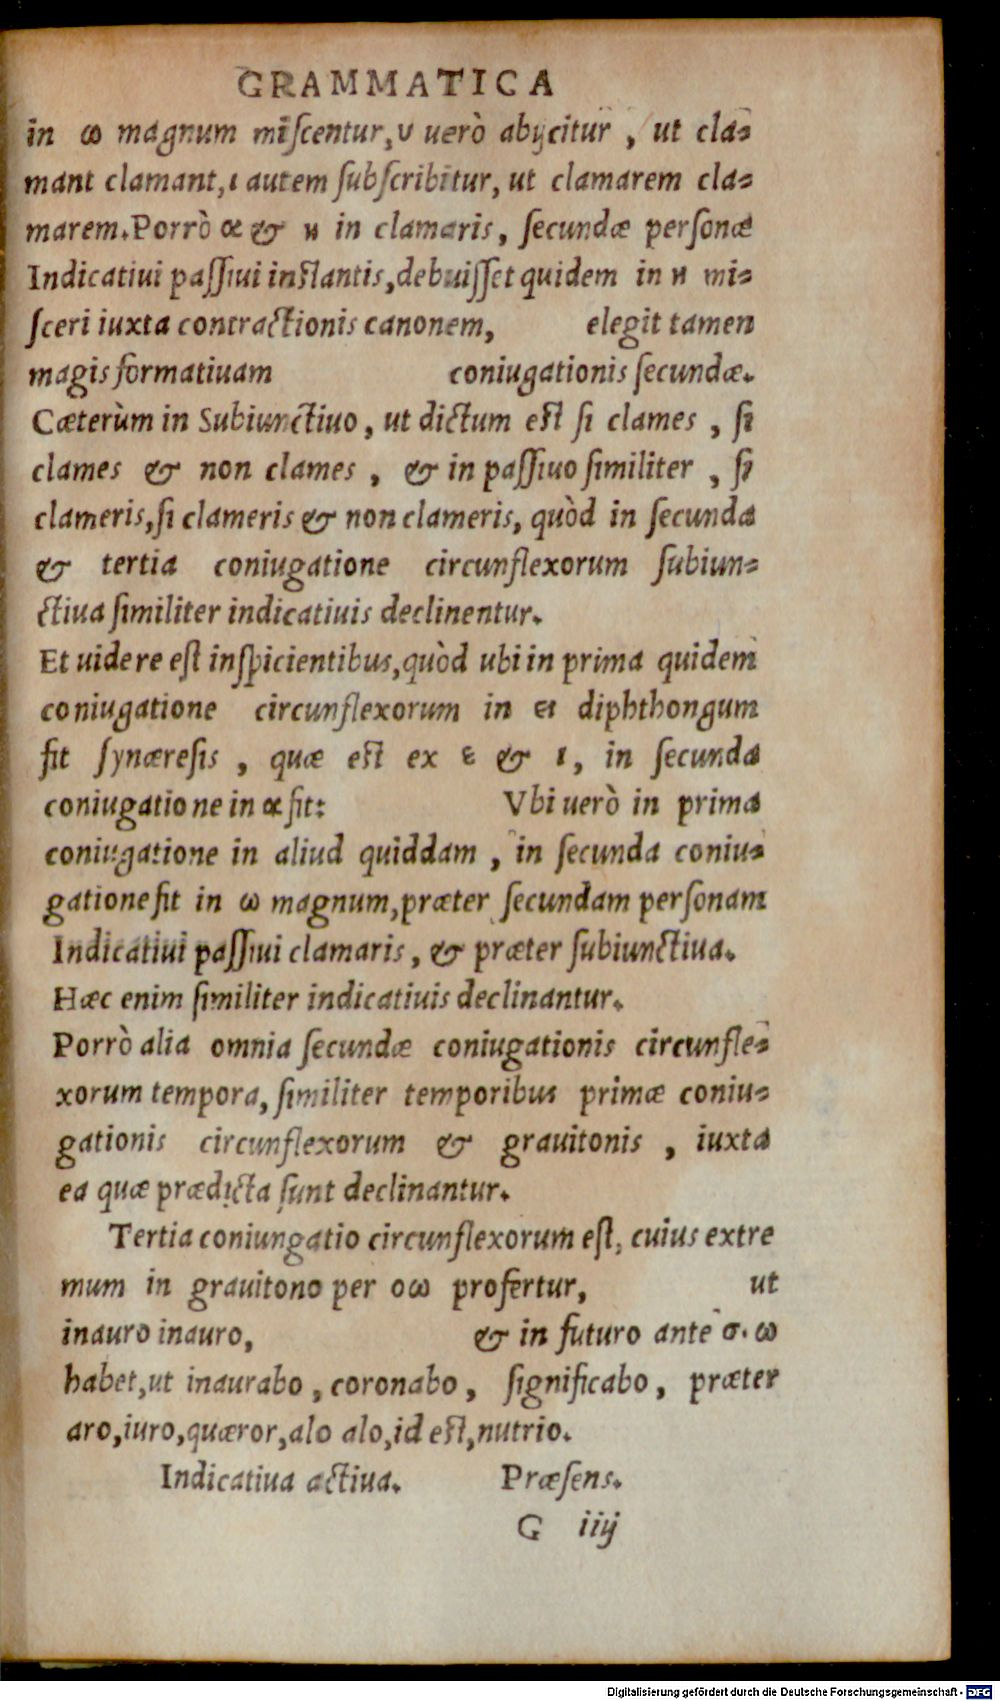 GRAMMATICA
in ω magnum miſcentur, υ uerò abijcitur, ut cla-
mant clamant, ι autem ſubſcribitur, ut clamarem cla-
marem. Porrò α & η in clamaris, ſecundæ perſonæ
Indicatiui paſſiui inſtantis, debuiſſet quidem in η mi-
ſceri iuxta contractionis canonem, elegit tamen
magis formatiuam coniugationis ſecundæ.
Cæterùm in Subiunctiuo, ut dictum eſt ſi clames, ſi
clames & non clames, & in paſſiuo ſimiliter, ſi
clameris, ſi clameris & non clameris, quòd in ſecunda
& tertia coniugatione circunflexorum ſubiun-
ctiua ſimiliter indicatiuis declinentur.
Et uidere eſt inſpicientibus, quòd ubi in prima quidem
coniugatione circunflexorum in ει diphthongum
fit ſynæreſis, quæ eſt ex ε & ι, in ſecunda
coniugatione in α fit: Vbi uerò in prima
coniugatione in aliud quiddam, in ſecunda coniu-
gatione fit in ω magnum, præter ſecundam perſonam
Indicatiui paſſiui clamaris, & præter ſubiunctiua.
Hæc enim ſimiliter indicatiuis declinantur.
Porrò alia omnia ſecundæ coniugationis circunfle-
xorum tempora, ſimiliter temporibus primæ coniu-
gationis circunflexorum & grauitonis, iuxta
ea quæ prædicta ſunt declinantur.
Tertia coniungatio circunflexorum eſt, cuius extre
mum in grauitono per οω profertur, ut
inauro inauro, & in futuro ante σ. ω
habet, ut inaurabo, coronabo, ſignificabo, præter
aro, iuro, quæror, alo alo, id eſt, nutrio.
Indicatiua actiua. Præſens.
G iiij
Digitalisierung gefördert durch die Deutsche Forschungsgemeinschaft - DFG